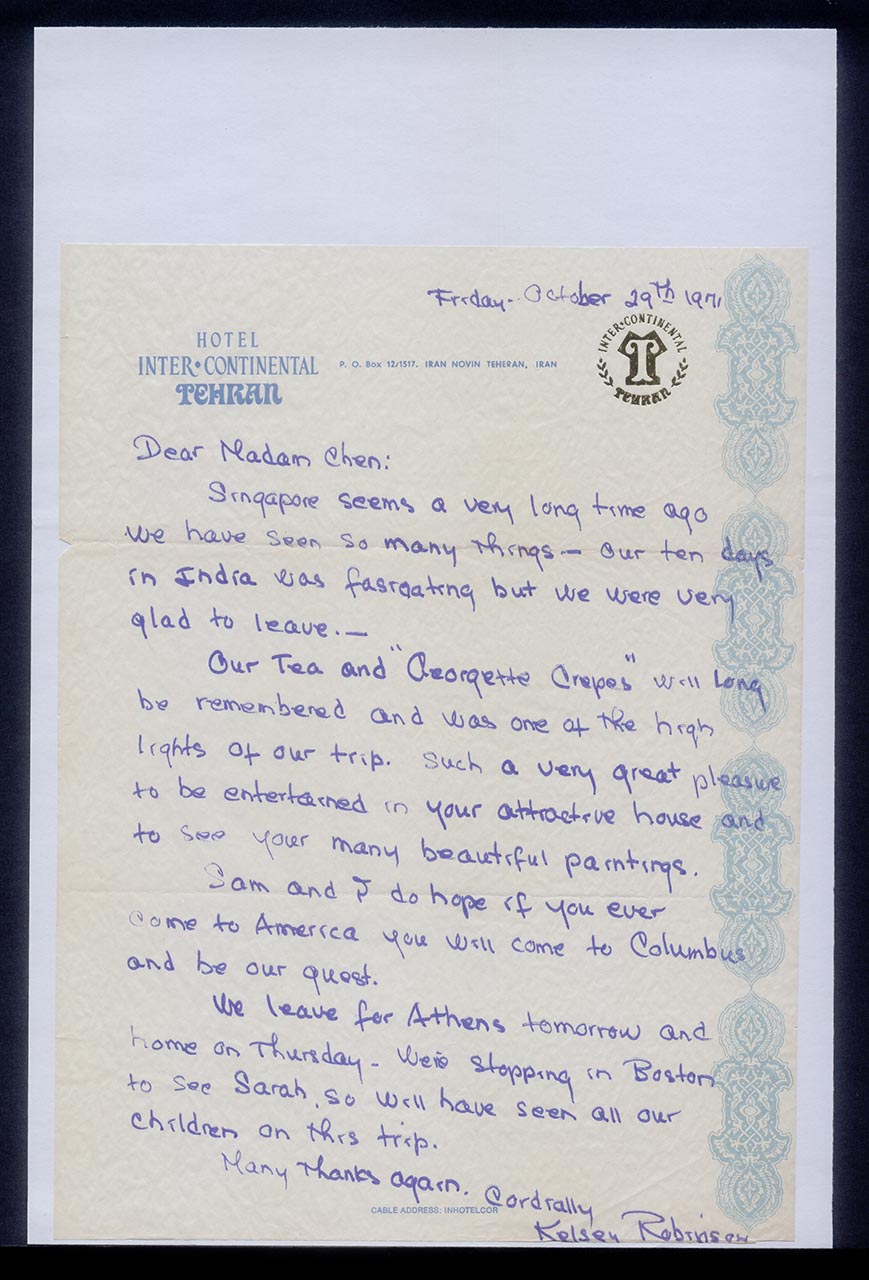 Friday - October 29th 1971
HOTEL
INTER•CONTINENTAL
TEHRAN
P. O. Box 12/1517, IRAN NOVIN TEHERAN, IRAN
INTER•CONTINENTAL
T
TEHRAN
Dear Madam Chen:
Singapore seems a very long time ago
we have seen so many things — Our ten days
in India was fasigating but we were very
glad to leave. —
Our Tea and "Georgette Crepes" will long
be remembered and was one of the high
lights of our trip. Such a very great pleasure
to be entertained in your attractive house and
to see your many beautiful paintings.
Sam and I do hope if you ever
come to America you will come to Columbus
and be our guest.
We leave for Athens tomorrow and
home on Thursday - We're stopping in Boston
to see Sarah, so will have seen all our
children on this trip.
Many Thanks again.
Cordially
CABLE ADDRESS: INHOTELCOR
Kelsey Robinson